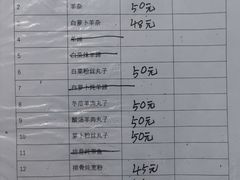 2 羊杂 50元
3 白萝卜羊杂 48元
4 羊蹄
5
6 白菜粉丝丸子 50元
7 白萝卜炖羊蹄
8 冬瓜羊肉丸子 50元
9 酸汤羊肉丸子 50元
10 萝卜粉丝丸子 50元
11
12 排骨炖宽粉 45元